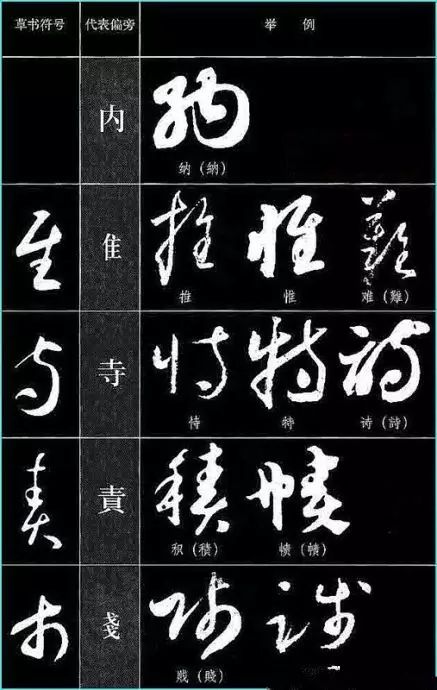 草书符号 代表偏旁 举 例
内
纳（納）
隹
推 惟 难（難）
寺
恃 特 诗（詩）
責
积（積） 帻（幘）
戔
贱（賤）